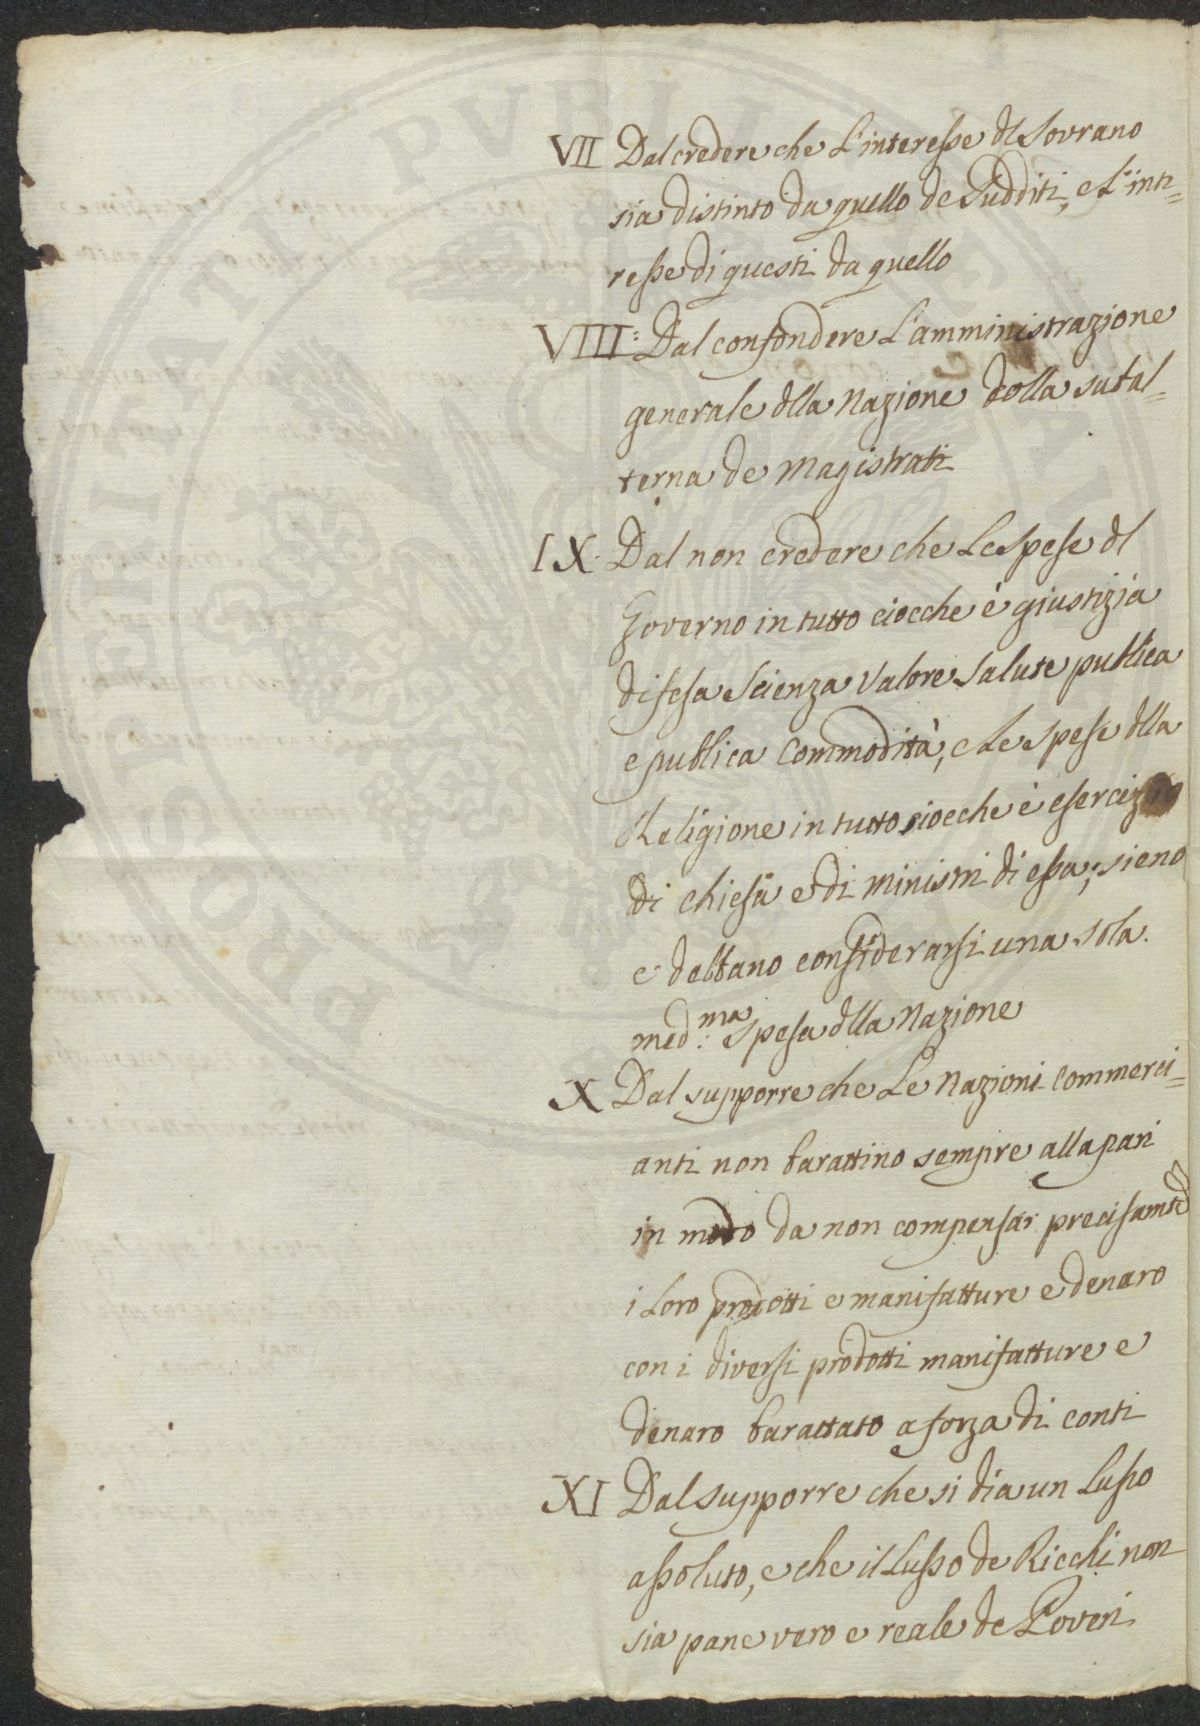 VII Dal credere che L'interesse dl Sovrano
sia distinto da quello de Sudditi, e L'inte=
resse di questi da quello
VIII: Dal confondere L'amministrazione
generale dlla Nazione dolla subal=
terna de Magistrati
IX. Dal non credere che Le spese dl
Governo in tutto ciocche è giustizia
difesa Scienza Valore Salute publica
e publica Commodità, e Le spese dlla
Religione in tutto ciocche è esercizio
di chiesa e di Ministri di essa; sieno
e debbano considerarsi una sola
med:ma spesa dlla Nazione
X Dal supporre che Le Nazioni Commerci=
anti non barattino sempre alla pari
in modo da non compensar precisamte
i Loro prodotti e manifatture e denaro
con i diversi prodotti manifatture e
denaro barattato a forza di conti
XI Dal supporre che si dia un Lusso
assoluto, e che il Lusso de Ricchi non
sia pane vero e reale de Poveri